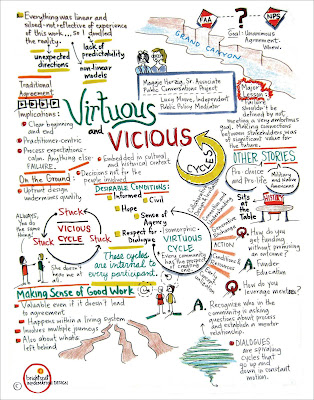 Everything was linear and
siloed-not reflective of experience
of this work... so I doodled
the reality.
unexpected
directions
lack of
predictability
non-linear
models
FAA
?
NPS
Goal: Unanimous
Agreement.
GRAND CANYON
Maggie Herzig, Sr. Associate
Public Conversations Project
Lucy Moore, Independent
Public Policy Mediator
Major
Lesson:
Failure
shouldn't
be defined by not
meeting a very ambitious
goal. Making connections
between stakeholders was
of significant value for
the future.
Traditional
Agreement
Implications:
Clear beginning
and end
Practitioner-centric
Process expectations:
calm. Anything else:
FAILURE.
Virtuous
and VICIOUS
CYCLES
Embedded in cultural
and historical context
On the Ground:
Decisions not for the
people involved
Upfront design
undermines quality
OTHER STORIES
Pro-choice
and Pro-life
Military
and Native
Americans
Sits at
the Table
HISTORY
DESIRABLE CONDITIONS:
Informed
Civil
Hope
Sense of
Agency
Respect for
Dialogue
ALWAYS,
You do
the same
thing!
Stuck
VICIOUS
CYCLE
Stuck
Stuck
She doesn't
hear me at
all.
Isomorphic:
VIRTUOUS
CYCLE
Every community
has the property
of another
one.
ACTION
These cycles
are internal to
every participant.
Q: How do you
get funding
without promising
an outcome?
A: Funder
Education
Q: How do you
leverage mentees?
A: Recognize who in
the community is asking
questions about process
and establish a mentor
relationship.
DIALOGUES
are spiraling
cycles that
go up and
down in constant
motion.
Making Sense of Good Work
Valuable even if it doesn't lead
to agreement
Happens within a living system
Involves multiple journeys
Also about what's
left behind